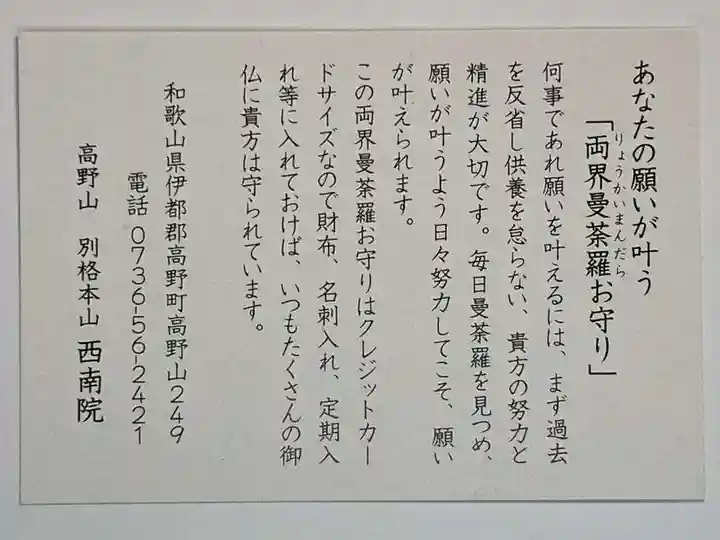 あなたの願いが叶う
「両界曼荼羅お守り」
りょうかいまんだら
何事であれ願いを叶えるには、まず過去
を反省し供養を怠らない、貴方の努力と
精進が大切です。毎日曼荼羅を見つめ、
願いが叶うよう日々努力してこそ、願い
が叶えられます。
この両界曼荼羅お守りはクレジットカー
ドサイズなので財布、名刺入れ、定期入
れ等に入れておけば、いつもたくさんの御
仏に貴方は守られています。
和歌山県伊都郡高野町高野山249
電話 0736-56-2421
高野山 別格本山 西南院